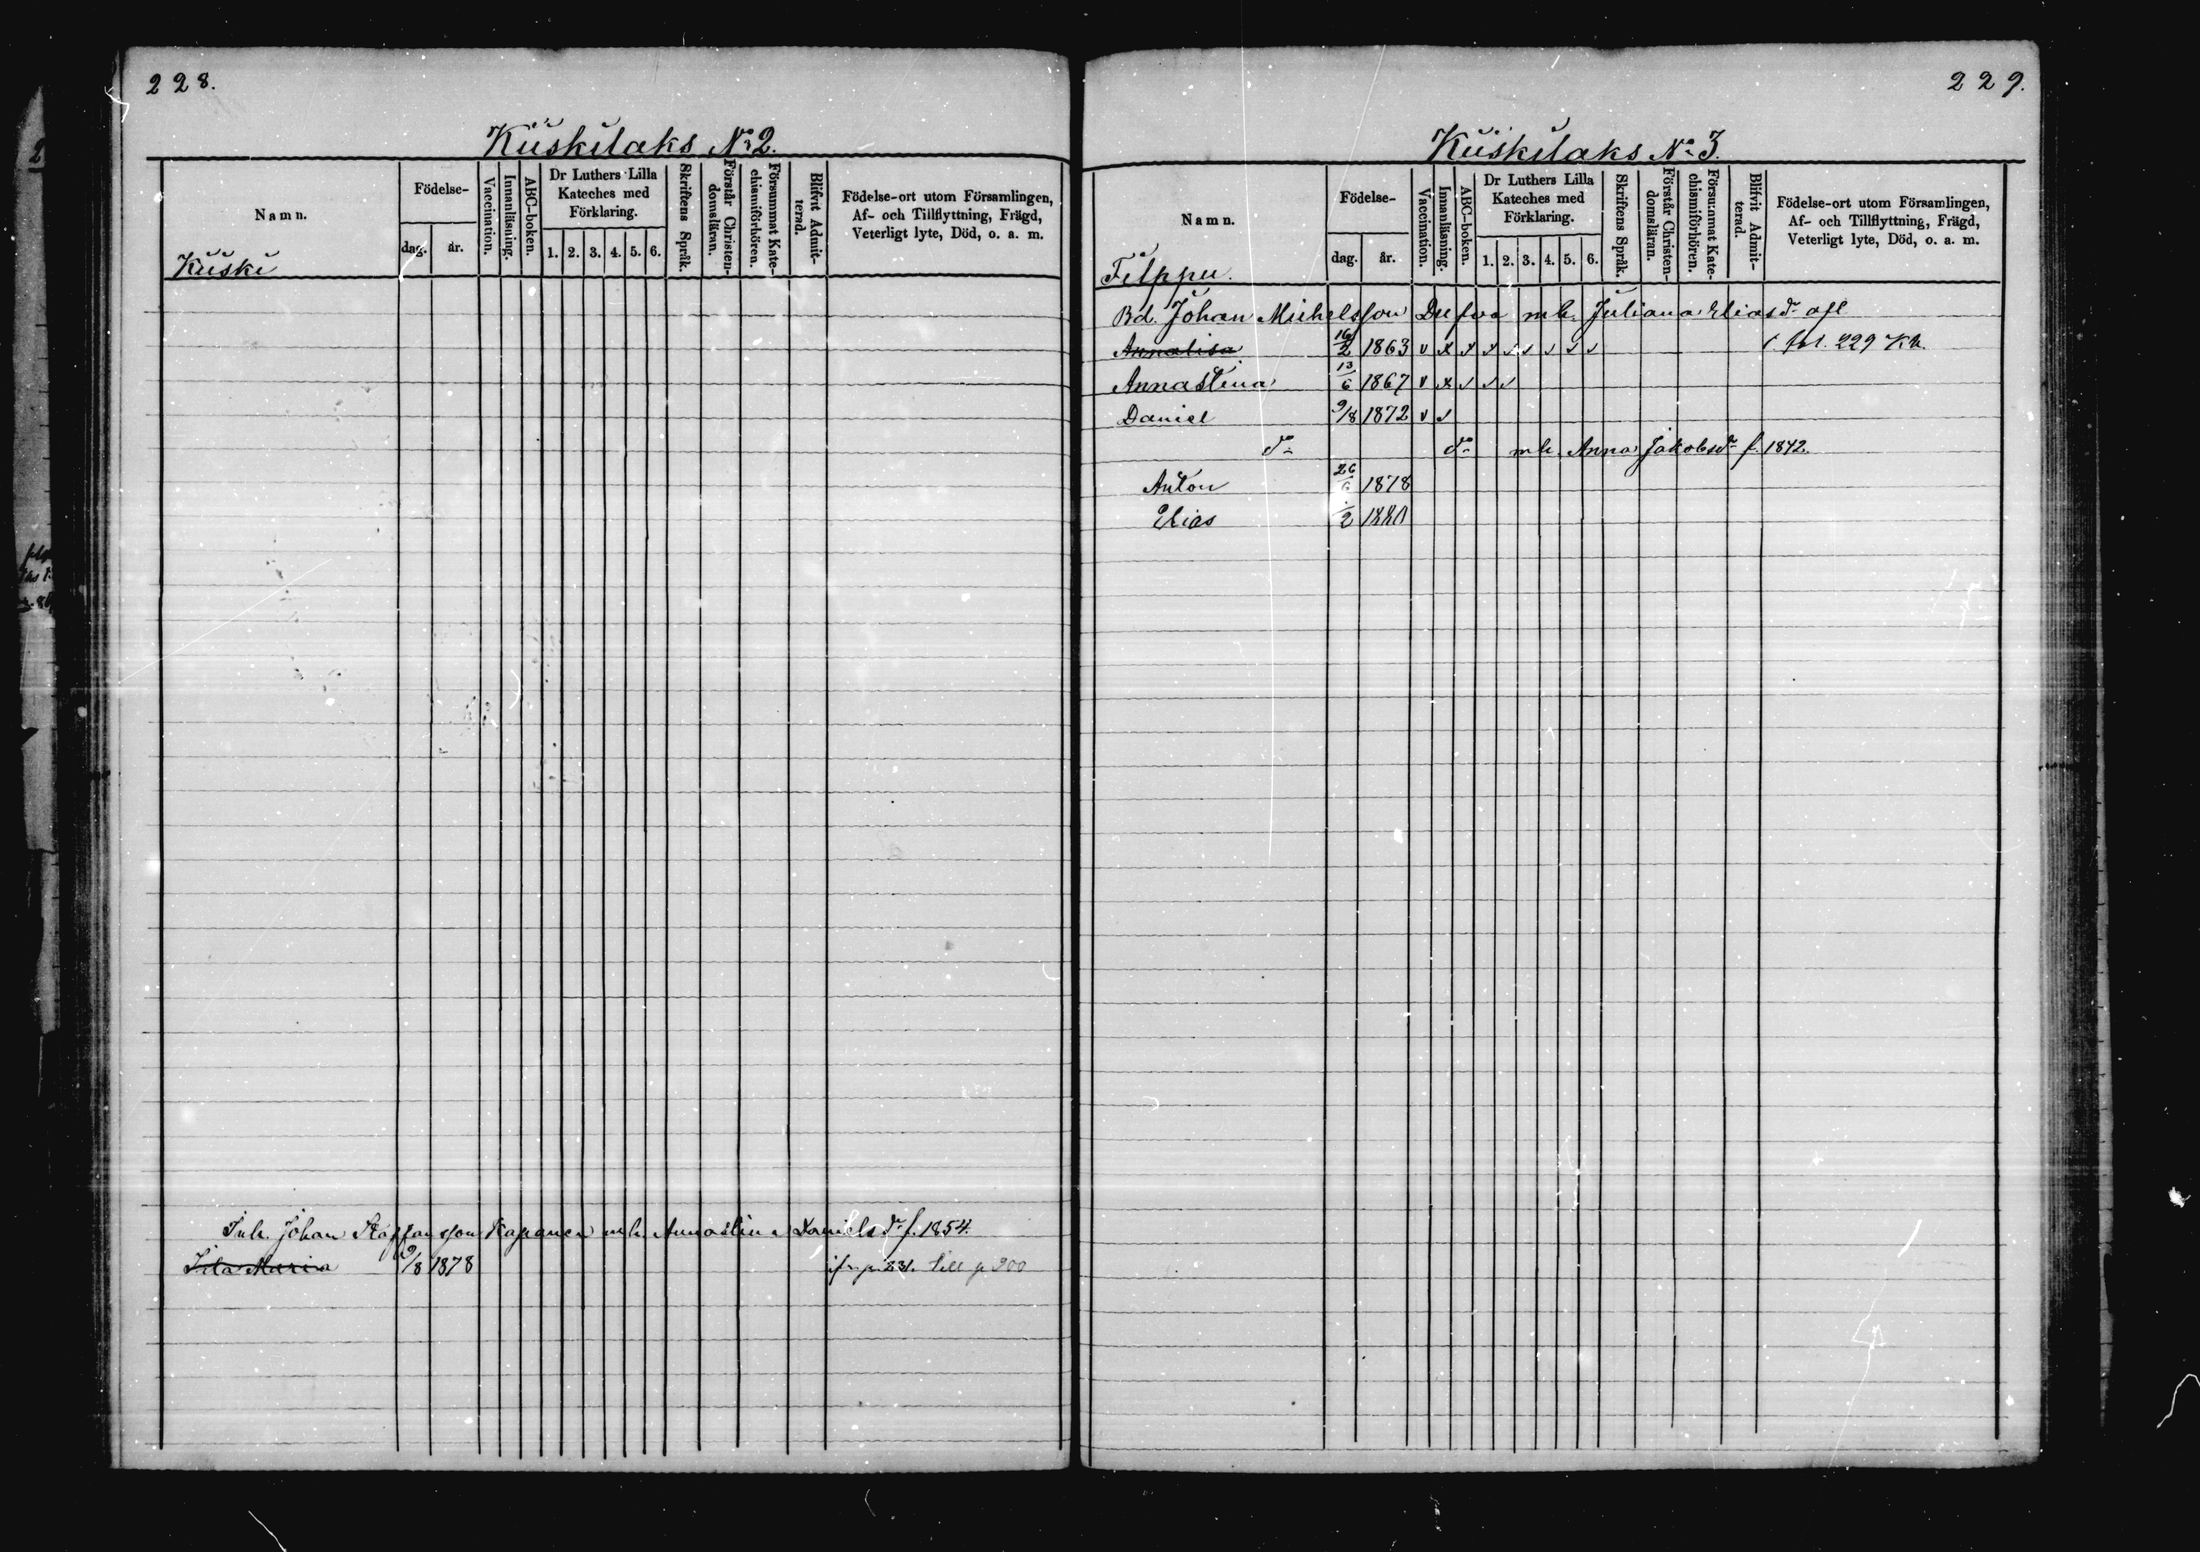 228.
Kiiskilaks No 2.
Namn.
Födelse-
dag.
år.
Vaccination.
Innanläsning.
ABC-boken.
Dr Luthers Lilla
Kateches med
Förklaring.
1. 2. 3. 4. 5. 6.
Skriftens Språk.
Förstår Christen-
domsläran.
Försummat Kate-
chismiförhören.
Blifvit Admit-
terad.
Födelse-ort utom Församlingen,
Af- och Tillflyttning, Frägd,
Veterligt lyte, Död, o. a. m.
Kiiski
Inh. Johan Staffansson Kapanen mh. Annastina Danielsdr f. 1854.
Maria 9/8 1878 p 231. till p 200
229.
Kiiskilaks No 3.
Namn.
Födelse-
dag.
år.
Vaccination.
Innanläsning.
ABC-boken.
Dr Luthers Lilla
Kateches med
Förklaring.
1. 2. 3. 4. 5. 6.
Skriftens Språk.
Förstår Christen-
domsläran.
Försummat Kate-
chismiförhören.
Blifvit Admit-
terad.
Födelse-ort utom Församlingen,
Af- och Tillflyttning, Frägd,
Veterligt lyte, Död, o. a. m.
Filppu.
Bd. Johan Michelsson Dufva mh. Juliana Eliasdr afl
Annalisa 16/2 1863 v x x x / / / / / fol. 229 Kb.
Annastina 13/6 1867 v x / / /
Daniel 9/8 1872 v /
do do mh. Anna Jakobsdr f. 1842.
Anton 26/6 1878
Elias /2 1880